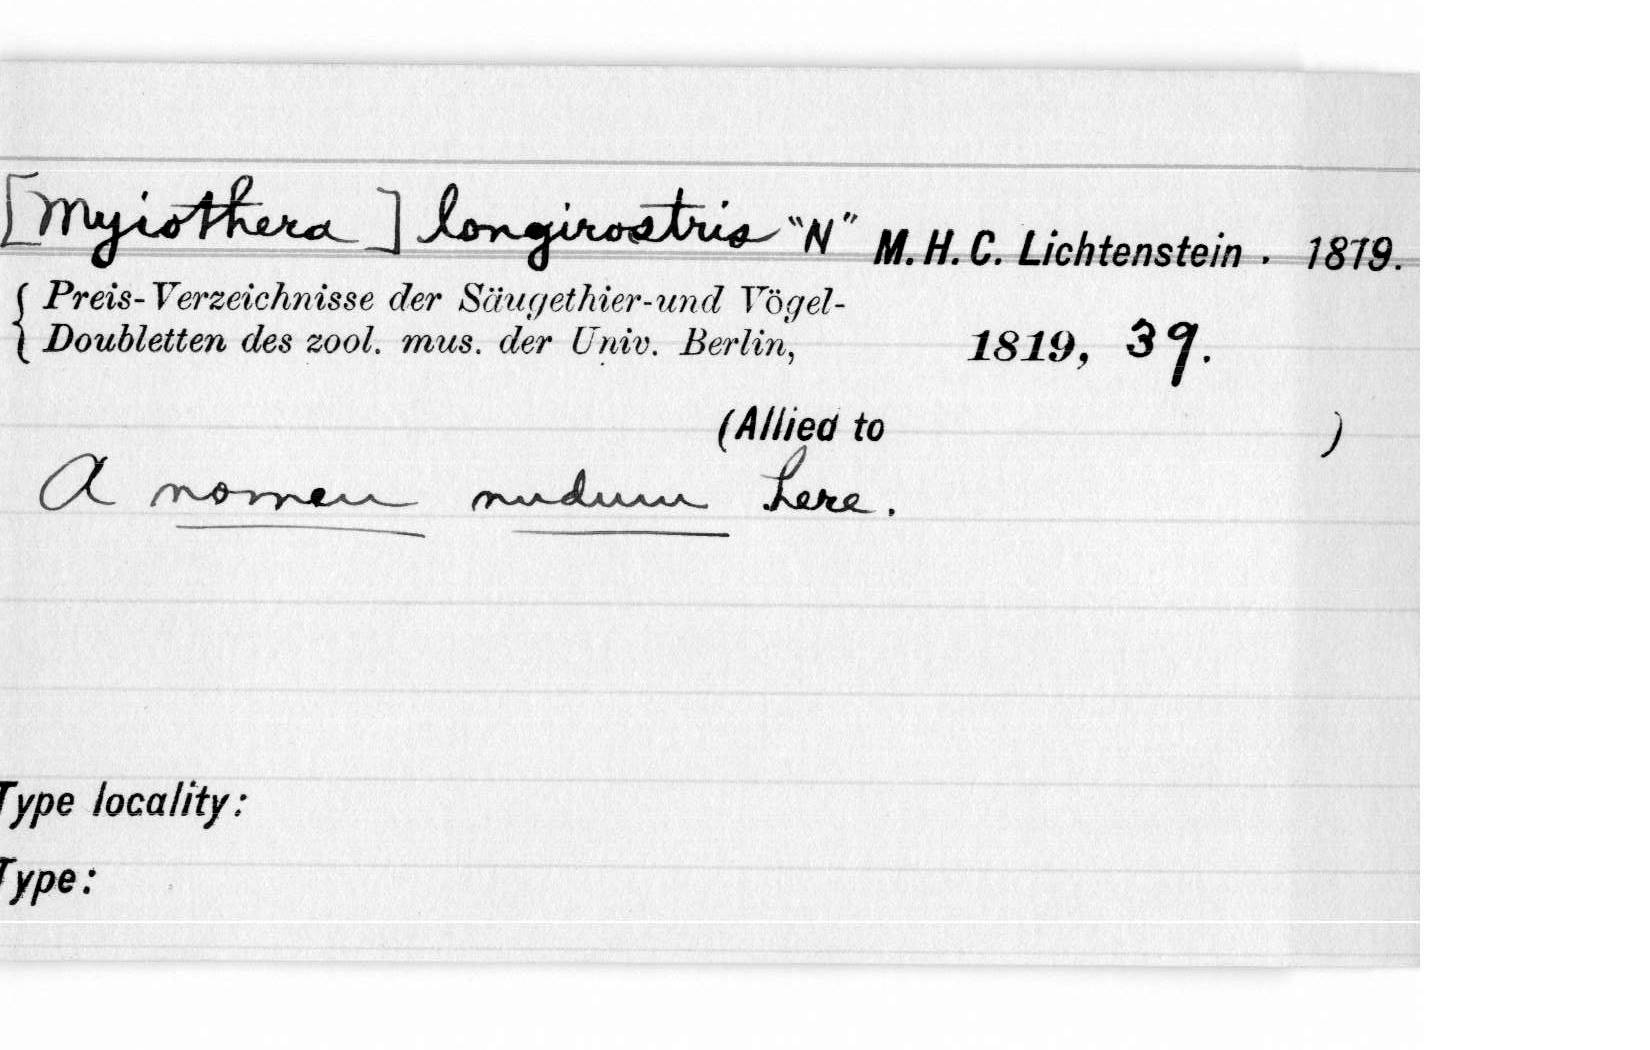 [Myiothera] longirostris "N" M. H. C. Lichtenstein . 1819.
{ Preis-Verzeichnisse der Säugethier-und Vögel-
Doubletten des zool. mus. der Univ. Berlin, 1819, 39.
(Allied to )
A nomen nudum here.
Type locality:
Type: